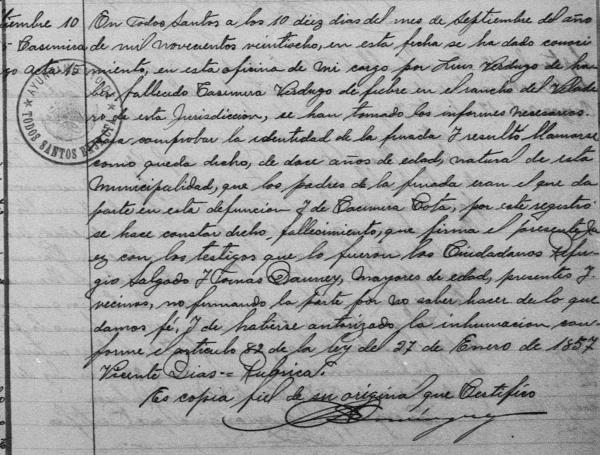 tiembre 10
Casimira
go Acta 15
AYU
TODOS SANTOS
En Todos Santos a los 10 diez dias del mes de Septiembre del año
de mil novecientos veintiocho, en esta fecha se ha dado conoci
miento, en esta oficina de mi cargo por Luis Verdugo de ha
fallecido Casimira Verdugo de fiebre en el rancho del Velade
ro de esta Jurisdiccion, se han tomado los informes nesesarios
para comprobar la identidad de la finada J resultó llamarse
como queda dicho, de doce años de edad, natural de esta
Municipalidad, que los padres de la finada eran el que da
parte en esta defuncion J de Casimira Cota, por este registro
se hace constar dicho fallecimiento, que firma el presente Ju
ez con los testigos que lo fueron los Ciudadanos Refu
gio Salgado J Tomas Dauney, mayores de edad, presentes J
vecinos, no firmando la parte por no saber hacer de lo que
damos fé, J de haberse autorizado la inhumacion con
forme el articulo 82 de la ley de 27 de Enero de 1857
Vicente Dias -- Rubrica.
Es copia fiel de su original que Certifico
Dominguez